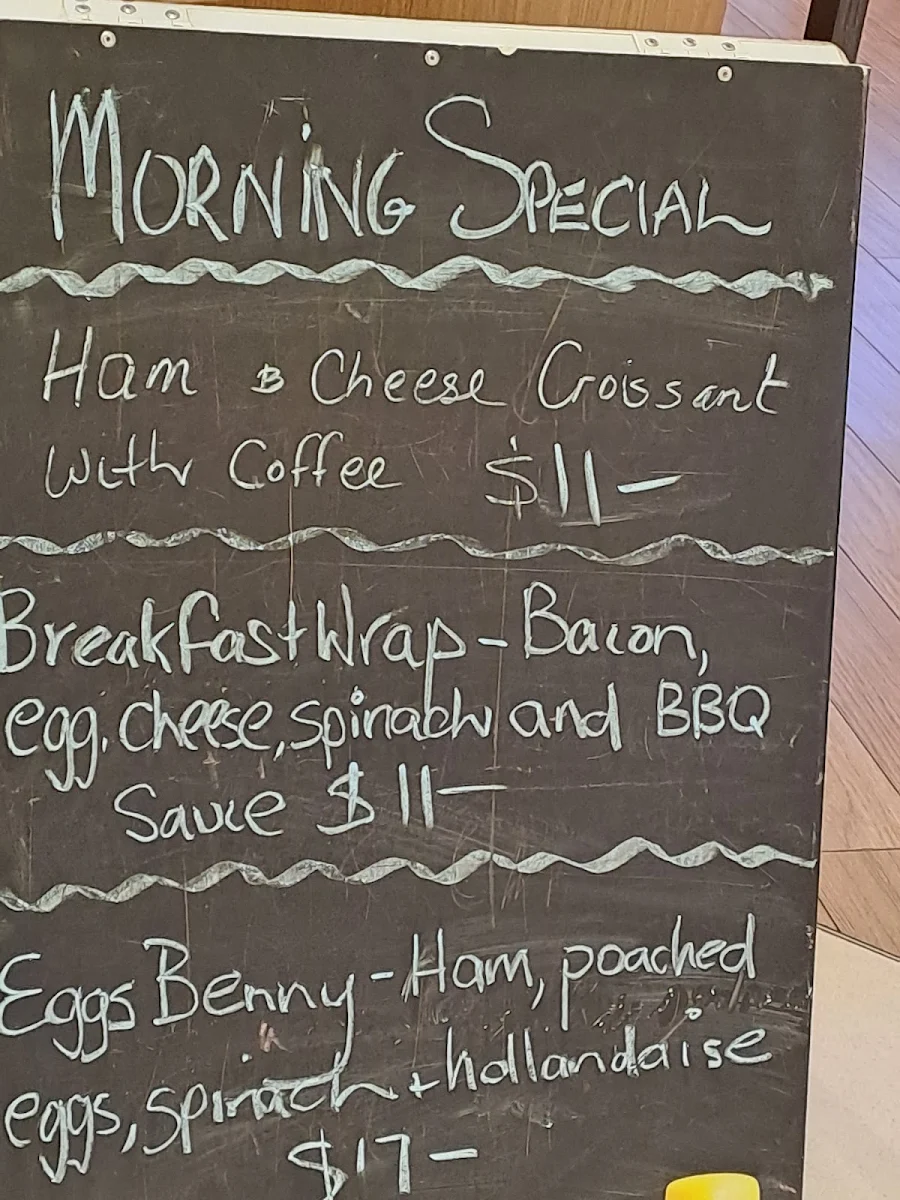 MORNING SPECIAL
Ham & Cheese Croissant
With Coffee $11-
Breakfast Wrap - Bacon,
egg, cheese, spinach and BBQ
Sauce $11-
Eggs Benny - Ham, poached
eggs, spinach + hollandaise
$17-